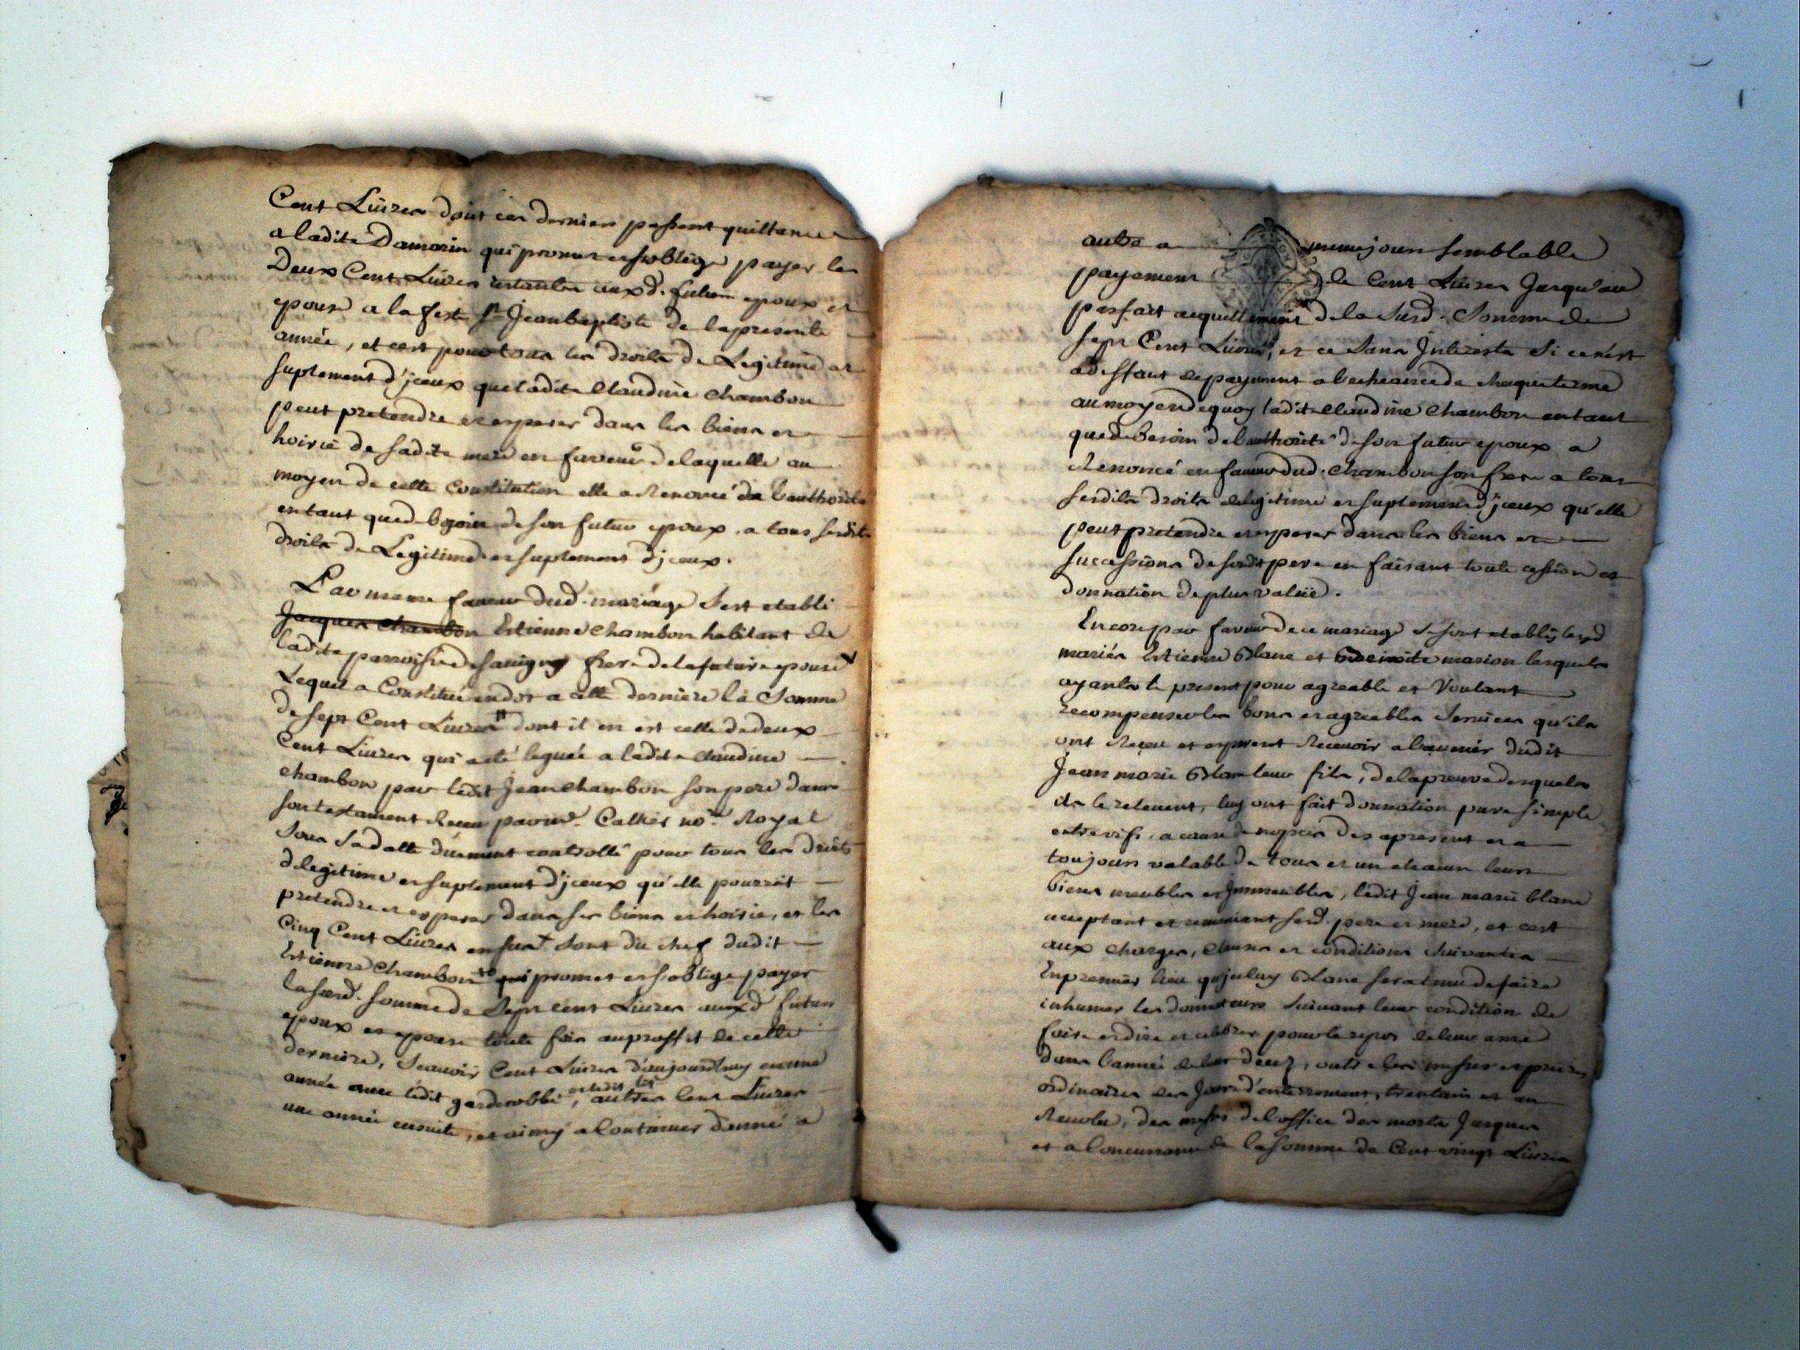 Cent Livres dont ces derniers passent quittance
a ladite Damorin qui promet et soblige payer les
Deux Cent Livres restantes auxd. futurs epoux et
epouse a la feste St Jeanbaptiste de la presente
année, et cest pour tous les droits de Legitime et
suplement d'jceux que ladite Claudine Chambon
peut pretendre et esperer dans les biens et
hoirie de sadite mere en faveur de laquelle au
moyen de cette Constitution elle a Renoncé de l'authorité
entant que de bezoin de son futur epoux a tous sesdits
droits de Legitime et suplement djceux.
Par meme faveur dud. mariage s'est etabli
Jacques Chambon Estienne Chambon habitant de
ladite parroisse de savigny frere de la future epouse
Lequel a Constitué en dot a cette derniere la Somme
de sept Cent Livres dont il en est celle de deux
Cent Livres qui a eté leguée a ladite Claudine
Chambon par ledit Jean Chambon son pere dans
son testament Receu par me. no.re Royal
sous sa datte duement controllé pour tous les droits
de legitime et suplement d'jceux qu'elle pourroit
pretendre et esperer dans ses biens et hoirie, et les
Cinq Cent Livres en sus sont du chef dudit
Estienne Chambon qui promet et s'oblige payer
la susd. somme de Sept cent Livres auxd. futurs
epoux et epouse toute fois au proffit de cette
derniere, Scavoir Cent Livres d'aujourd'huy en une
année avec ledit garderobbe, autres Cent Livres
une année ensuite, et ainsy a Continuer d'année a
autre a meme jour semblable
payement de Cent Livres Jusqu'au
parfait acquittement de la Susd. Somme de
sept Cent Livres, et ce sans Interests si ce n'est
a deffaut de payement a l'echeance de chaque terme
au moyen de quoy ladite Claudine Chambon entant
que de besoin de l'authorité de son futur epoux a
Renoncé en faveur dud. Chambon son frere a tous
sesdits droits de legitime et suplement d'jceux qu'elle
peut pretendre et esperer dans les biens et
successions de sondit pere en faisant toute cession et
donnation de plus value.
Encore par faveur de ce mariage se sont etablis lesd
mariés Estienne Blanc et Benoite marion lesquels
ayants le present pour agreable et Voulant
recompenser les bons et agreables Services qu'ils
ont Receu et esperent Recevoir a l'avenir dudit
Jean marie Blanc leur fils, de la preuve desquels
ils le relevent, luy ont fait donnation pure simple
entre vifs, a cause de nopces des apresent et a
toujours valable de tous et un chacun leurs
biens meubles et Jmmeubles, ledit Jean marie blanc
acceptant et remerciant sesd. pere et mere, et cest
aux charges, clauses et conditions suivantes
En premier lieu qu'jceluy Blanc sera tenu de faire
inhumer les donateurs suivant leur condition de
faire dire et celebrer pour le repos de leur ame
dans l'année de leur decez, outre les messes et prieres
ordinaires des Jours d'enterrement, trentain et an
Revolu, des messes de l'office des morts Jusques
et a Concurrance de la somme de Cent vingt Livres